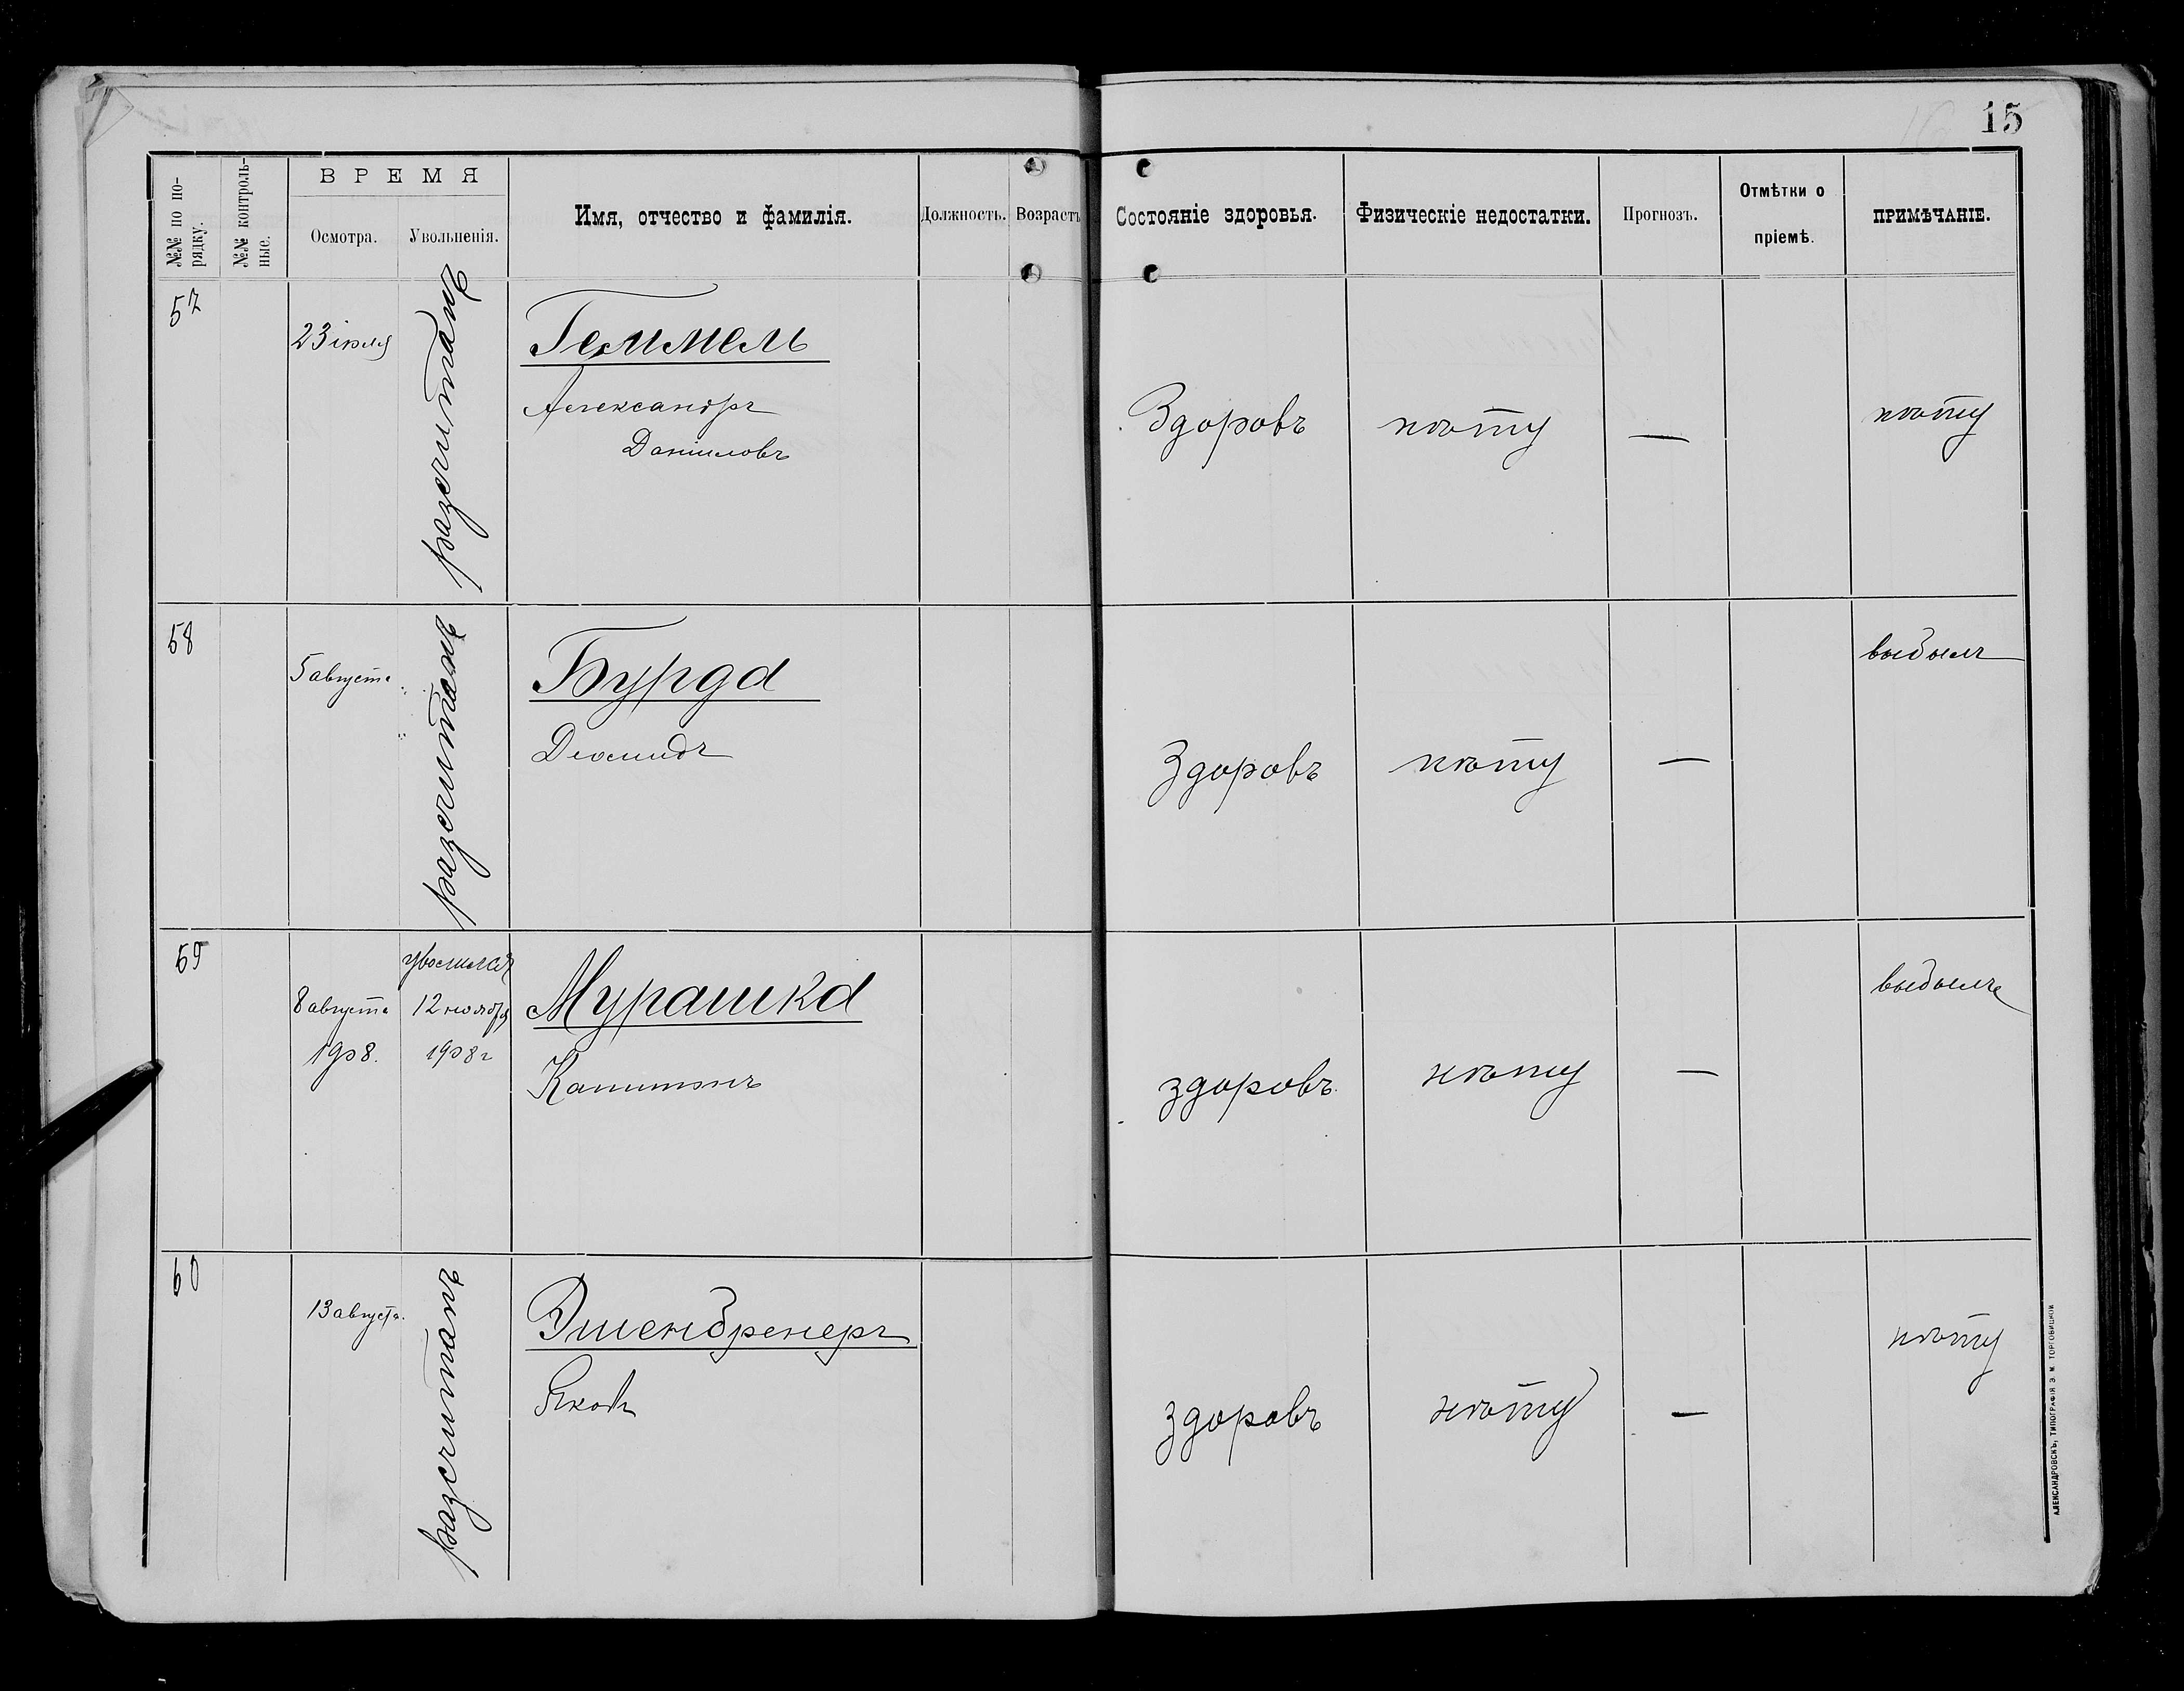 15
№№ по по-
рядку.
№№ контроль-
ные.
ВРЕМЯ
Осмотра.
Увольненія.
Имя, отчество и фамилія.
Должность.
Возрастъ
Состояніе здоровья.
Физическіе недостатки.
Прогнозъ.
Отмѣтки о
пріемѣ.
ПРИМѢЧАНІЕ.
57
23 іюля
разсчитанъ
Геммель
Александръ
Даниловъ
Здоровъ
нѣту
—
нѣту
58
5 августа
разсчитанъ
Бурда
Диомидъ
Здоровъ
нѣту
—
выбылъ
59
8 августа
1908.
уволился
12 ноября
1908 г
Мурашка
Капитонъ
здоровъ
нѣту
—
выбылъ
60
13 августа.
разсчитанъ
Эшенбренеръ
Яковъ
здоровъ
нѣту
—
нѣту
АЛЕКСАНДРОВСКЪ, ТИПОГРАФІЯ Э. М. ТОРГОВИЦКОЙ